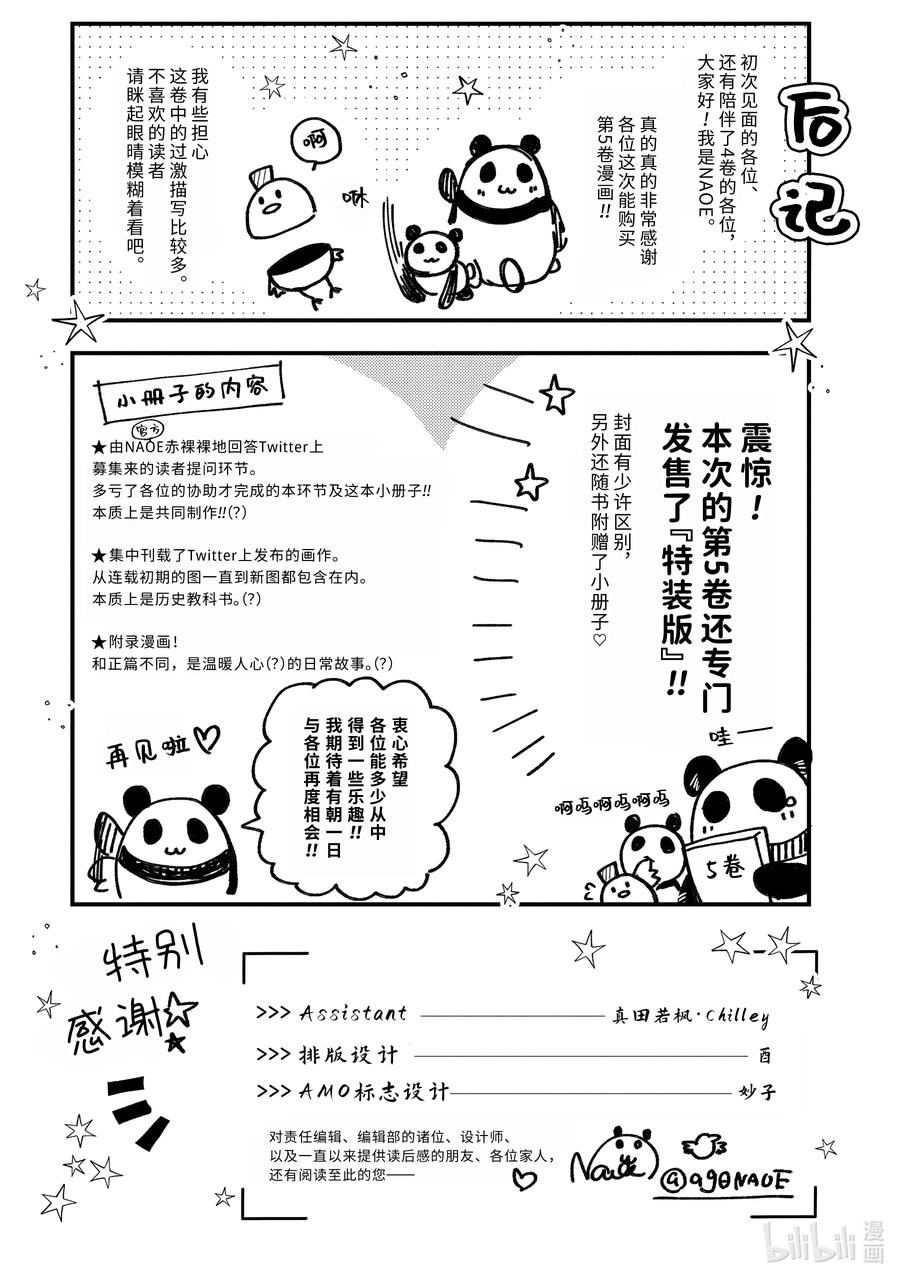 后记
初次见面的各位、
还有陪伴了4卷的各位,
大家好!我是NAOE。
真的真的非常感谢
各位这次能购买
第5卷漫画!!
咻
啊
我有些担心
这卷中的过激描写比较多。
不喜欢的读者
请眯起眼睛模糊着看吧。
震惊!
本次的第5卷还专门
发售了『特装版』!!
封面有少许区别,
另外还随书附赠了小册子♡
小册子的内容
官方
★由NAOE赤裸裸地回答Twitter上
募集来的读者提问环节。
多亏了各位的协助才完成的本环节及这本小册子!!
本质上是共同制作!!(?)
★集中刊载了Twitter上发布的画作。
从连载初期的图一直到新图都包含在内。
本质上是历史教科书。(?)
★附录漫画!
和正篇不同,是温暖人心(?)的日常故事。(?)
哇——
啊呜啊呜啊呜
5卷
衷心希望
各位能多少从中
得到一些乐趣!!
我期待着有朝一日
与各位再度相会!!
再见啦♡
特别
感谢☆
>>> Assistant ——— 真田若枫·Chilley
>>> 排版设计 ——— 酉
>>> AMO标志设计 ——— 妙子
对责任编辑、编辑部的诸位、设计师、
以及一直以来提供读后感的朋友、各位家人,
还有阅读至此的您——
Naoe
@ago0NAOE
bilibili漫画